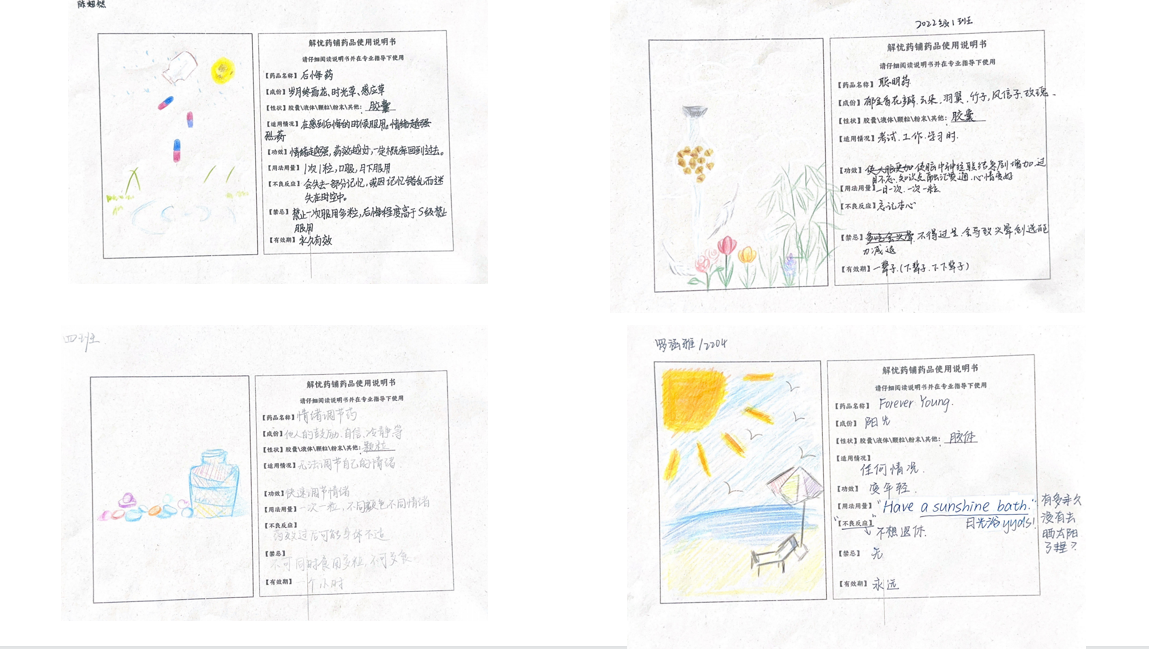 陈韬燃
解忧药铺药品使用说明书
请仔细阅读说明书并在专业指导下使用
【药品名称】后悔药
【成份】岁月终面蕊、时光草、感应草
【性状】胶囊\液体\颗粒\粉末\其他: 胶囊
【适用情况】在感到后悔的时候服用,情绪越强
【功效】情绪越强,药效越好,一定概率回到过去。
【用法用量】1次1粒,口服,月下服用
【不良反应】会失去一部分记忆,或因记忆错乱而迷
失在时空中。
【禁忌】禁止一次服用多粒,后悔程度高于S级禁止
服用
【有效期】永久有效
2022级1班
解忧药铺药品使用说明书
请仔细阅读说明书并在专业指导下使用
【药品名称】聪明药
【成份】郁金香花瓣、云朵、羽翼、竹子,风信子,玫瑰、
【性状】胶囊\液体\颗粒\粉末\其他: 胶囊
【适用情况】考试、工作、学习时.
【功效】使大脑更加 使脑中神经联络急剧增加,过
目不忘,知识是融汇贯通,心情变好
【用法用量】一日一次,一次一粒
【不良反应】忘记本心
【禁忌】不得过生,会导致头晕创造能
力减退
【有效期】一辈子.(下辈子、下下辈子)
四班
解忧药铺药品使用说明书
请仔细阅读说明书并在专业指导下使用
【药品名称】情绪调节药
【成份】他人的鼓励、自信、冷静等
【性状】胶囊\液体\颗粒\粉末\其他: 颗粒
【适用情况】无法调节自己的情绪
【功效】快速调节情绪
【用法用量】一次一粒,不同颜色不同情绪
【不良反应】
药效过后可能身体不适
【禁忌】
不可同时食用多粒,不可多食
【有效期】 一个小时
罗涵雅/2204
解忧药铺药品使用说明书
请仔细阅读说明书并在专业指导下使用
【药品名称】 Forever Young.
【成份】 阳光
【性状】胶囊\液体\颗粒\粉末\其他: 胶体
【适用情况】
任何情况.
【功效】 变年轻.
【用法用量】 "Have a sunshine bath."
日光浴yyds!
【不良反应】 不想退休.
【禁忌】 无
【有效期】 永远
有多来久
没有去
晒太阳
了捏?